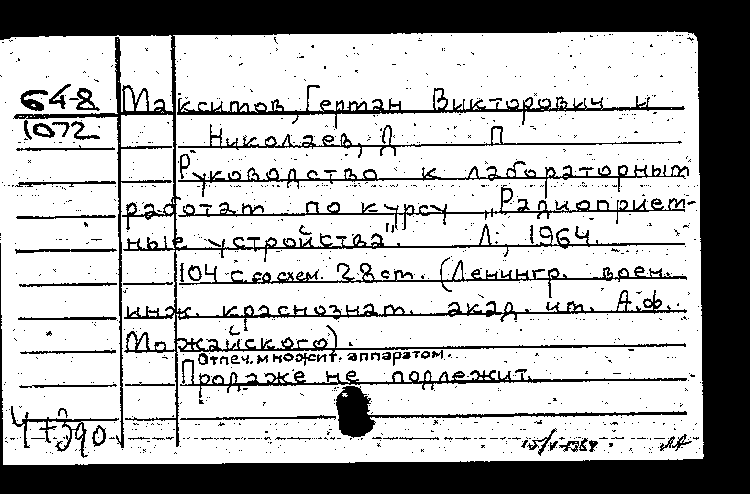 64-8 Максимов, Герман Викторович и
1072 Николаев, Д П
Руководство к лабораторным
работам по курсу „Радиоприем-
ные устройства". Л., 1964.
104 с. со схем. 28 см. (Ленингр. воен.
инж. краснознам. акад. им. А.Ф.
Можайского).
Отпеч. множит. аппаратом.
Продаже не подлежит.